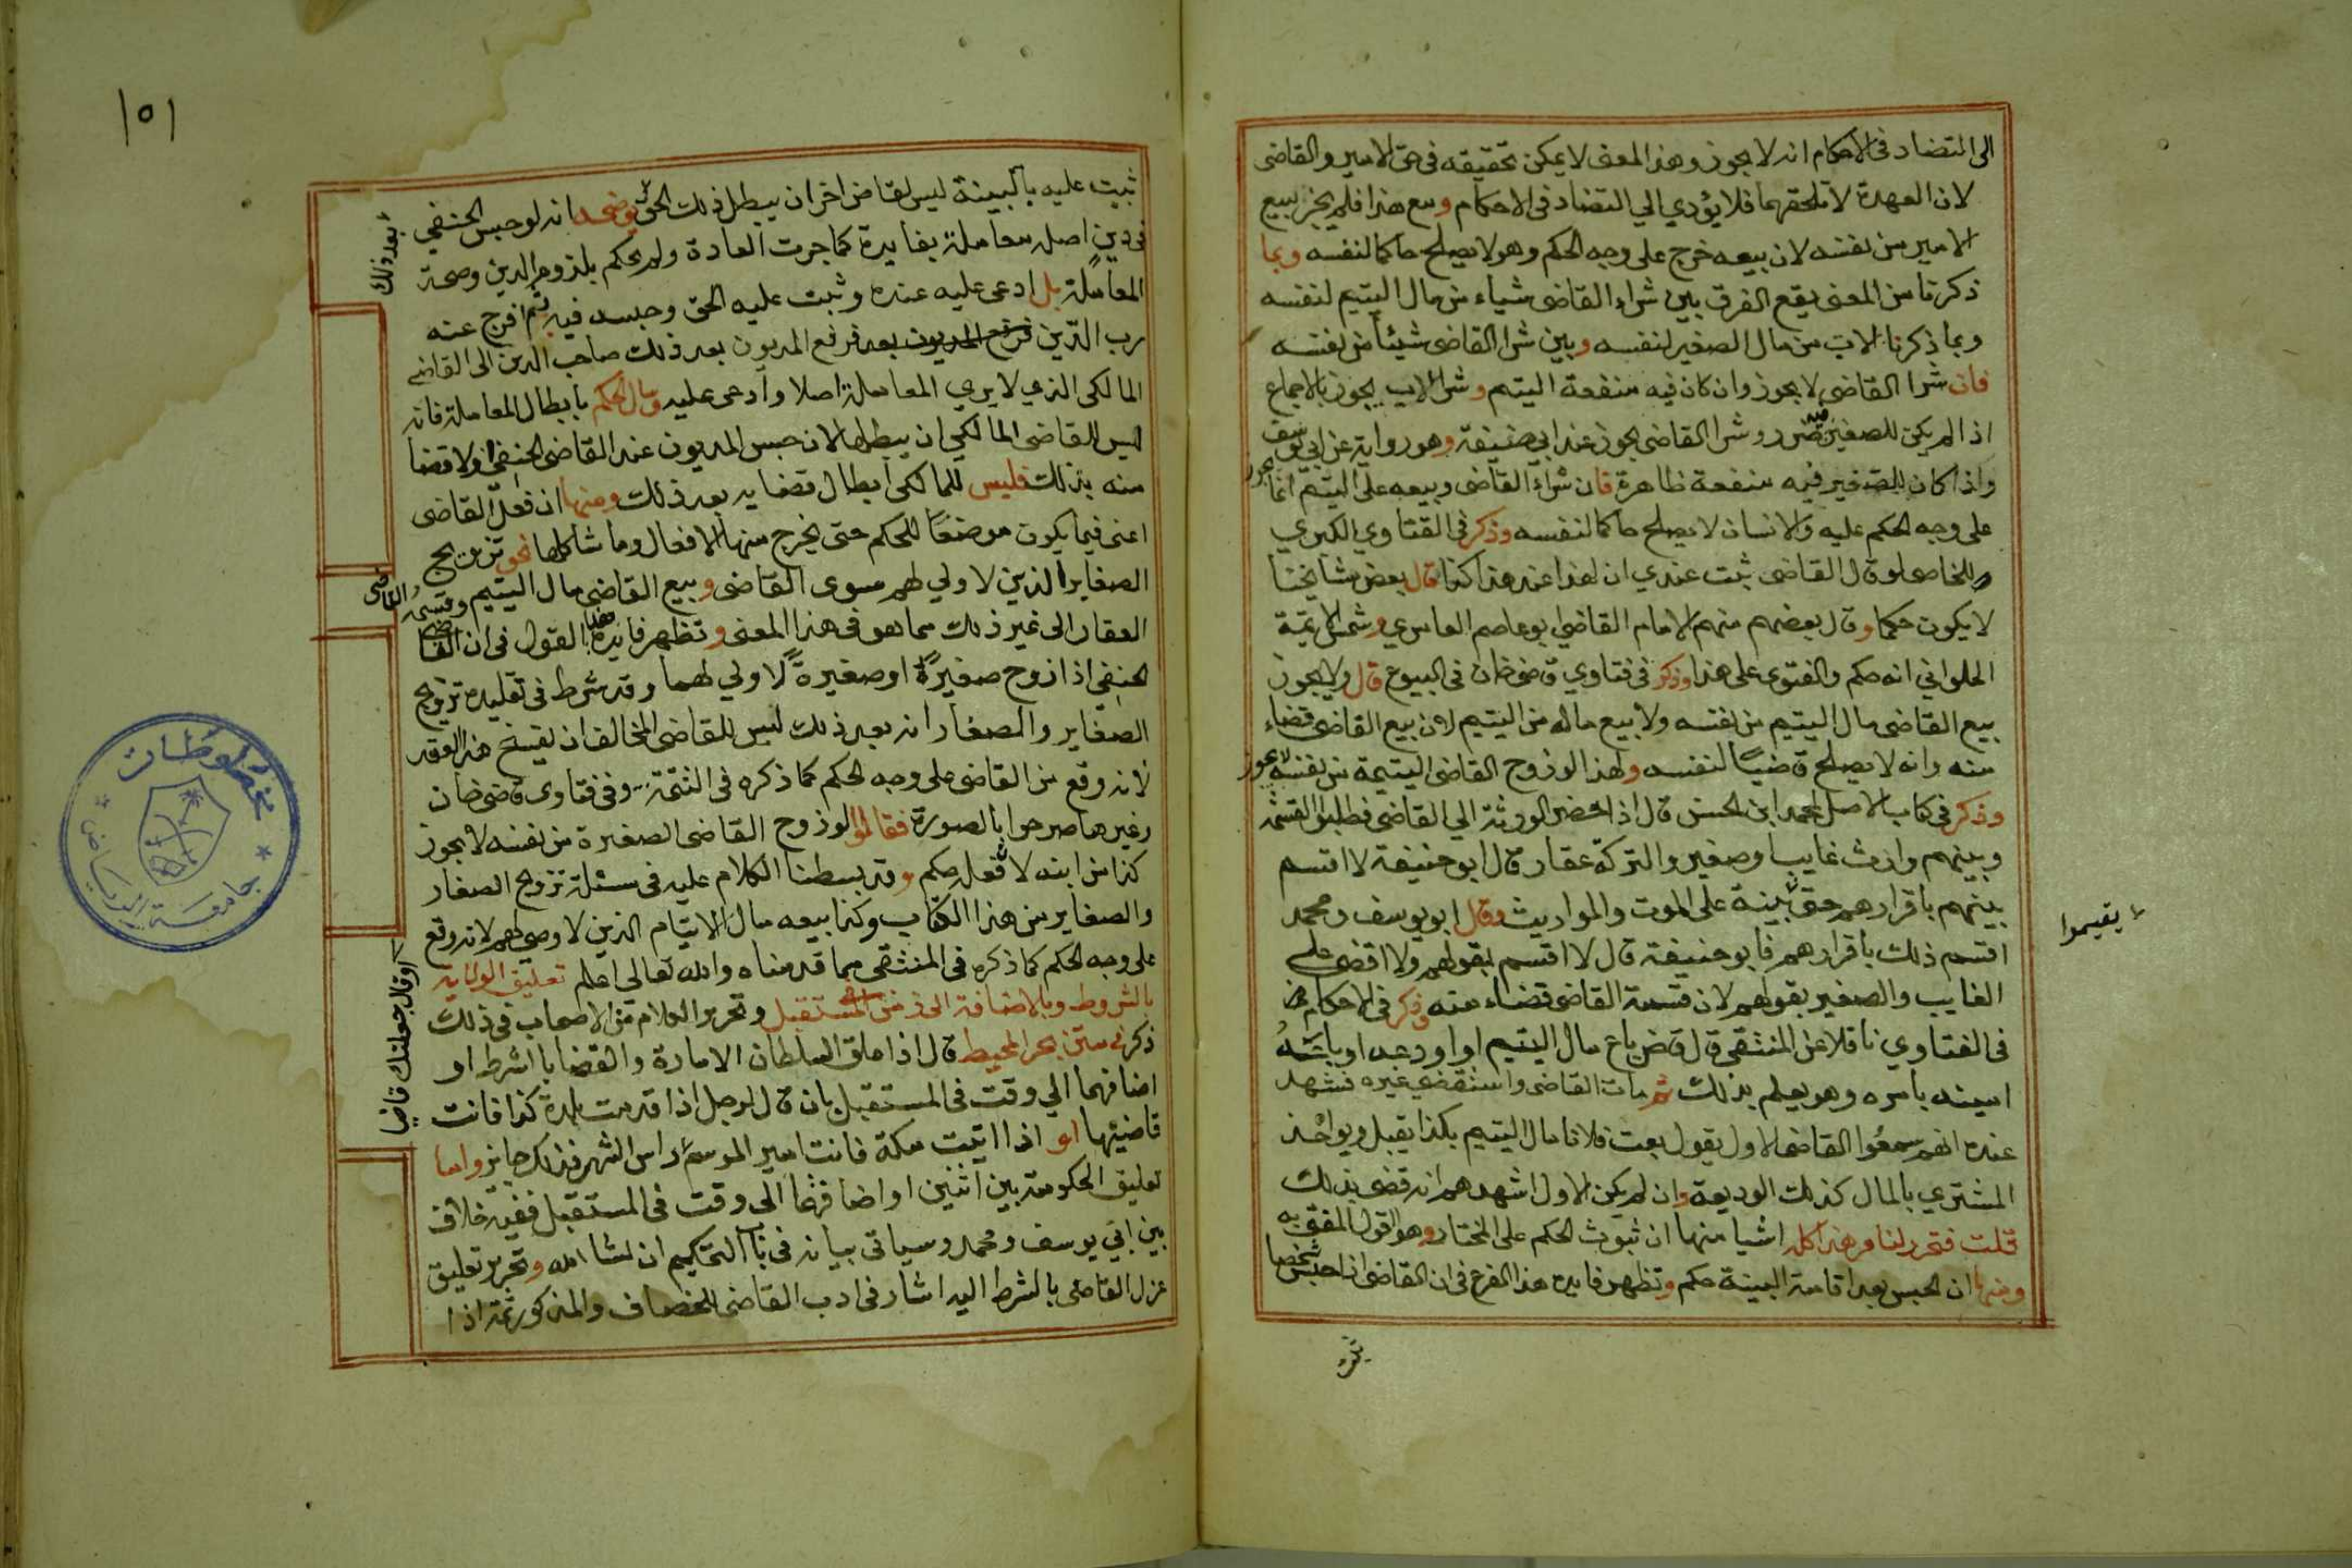 الى التضاد فى الاحكام انه لا يجوز وهذا المعنى لا يمكن تحقيقه فى حق الامير والقاضى
لان العهدة لا تلحقهما فلا يؤدي الي التضاد فى الاحكام ومع هذا فلم يجز بيع
الامير من نفسه لان بيعه خرج على وجه الحكم وهو لا يصلح حاكما لنفسه وبما
ذكرنا من المعنى يقع الفرق بين شراء القاضى شياء من مال اليتيم لنفسه
وبما ذكرنا الاب من مال الصغير لنفسه وبين شرا القاضى شيئا من نفسه
فان شرا القاضى لا يجوز وان كان فيه منفعة اليتيم وشرا الاب يجوز بالاجماع
اذا لم يكن للصغير فيه ضرر وشرا القاضى يجوز عند ابي حنيفة وهو رواية عن ابي يوسف
واذا كان للصغير فيه منفعة ظاهرة فان شراء القاضى وبيعه على اليتيم انما يجوز
على وجه الحكم عليه والانسان لا يصلح حاكما لنفسه وذكر فى الفتاوي الكبري
والخاصى لو قال القاضى ثبت عندي ان لهذا عند هذا كذا قال بعض مشايخنا
لا يكون حكما وقال بعضهم منهم الامام القاضي ابو عاصم العامري وشمس الايمة
الحلواني انه حكم والفتوى على هذا وذكر فى فتاوي قاضى خان فى البيوع قال ولا يجوز
بيع القاضى مال اليتيم من نفسه ولا بيع ماله من اليتيم لان بيع القاضى قضاء
منه وانه لا يصلح قاضيا لنفسه ولهذا لو زوج القاضى اليتيمة من نفسه لا يجوز
وذكر فى كتاب الاصل لمحمد ابن الحسن قال اذا حضر الورثة الي القاضى فطلبوا القسمة
وبينهم وارث غايب او صغير والتركة عقار قال ابو حنيفة لا اقسم
بينهم باقرارهم حتى بينة على الموت والمواريث وقال ابو يوسف ومحمد
يقيموا
اقسم ذلك باقرارهم فابو حنيفة قال لا اقسم بقولهم ولا اقضى على
الغايب والصغير بقولهم لان قسمة القاضى قضاء منه وذكر فى الاحكام
فى الفتاوي ناقلا عن المنتقى قال قاض باع مال اليتيم او اودعه او باعه
امينه بامره وهو يعلم بذلك ثم مات القاضى واستقضى غيره فشهد
عنده انهم سمعوا القاضى الاول يقول بعت فلانا مال اليتيم بكذا يقبل ويواخذ
المشتري بالمال كذلك الوديعة وان لم يكن الاول اشهدهم انه قضى بذلك
قلت فتحرر لنا من هذا كله اشيا منها ان ثبوت الحكم على المختار وهو القول المفتى به
ومنها ان الحبس بعد اقامة البينة حكم وتظهر فايدة هذا الفرع فى ان القاضى اذا حبس شخصا
١٥١
ثبت عليه بالبينة ليس لقاض اخر ان يبطل ذلك الحق يوضحه انه لو حبس الحنفي
بعد ذلك
فى دين اصله معاملة بفايدة كما جرت العادة ولم يحكم بلزوم الدين وصحة
المعاملة بل ادعى عليه عنده وثبت عليه الحق وحبسه فيه ثم افرج عنه
رب الدين فرفع المديون بعد فرفع المديون بعد ذلك صاحب الدين الى القاضى
المالكى الذي لا يري المعاملة اصلا وادعى عليه وسال الحكم بابطال المعاملة فانه
ليس للقاضى المالكي ان يبطلها لان حبس المديون عند القاضى الحنفي اولا قضا
منه بذلك فليس للمالكى ابطال قضايه بعد ذلك ومنها ان فعل القاضى
اعنى فيما يكون موضعا للحكم حتى يخرج منها الافعال وما شاكلها نحو تزويج
الصغاير الذين لا ولي لهم سوى القاضى وبيع القاضى مال اليتيم وقسمة القاضى
العقار الى غير ذلك مما هو فى هذا المعنى وتظهر فايدة هذا القول فى ان القاضى
الحنفي اذا زوج صغيرة او صغيرة لا ولي لهما وقد شرط فى تقليده تزويج
الصغاير والصغار انه بعد ذلك ليس للقاضى المخالف ان يفسخ هذا العقد
لانه وقع من القاضى على وجه الحكم كما ذكره فى التتمة وفى فتاوى قاضى خان
وغيرها صرحوا بالصورة فقالوا لو زوج القاضى الصغيرة من نفسه لا يجوز
كذا من ابنه لا فعله حكم وقد بسطنا الكلام عليه فى مسئلة تزويج الصغار
والصغاير من هذا الكتاب وكذا بيعه مال الايتام الذين لا وصى لهم لانه وقع
على وجه الحكم كما ذكره فى المنتقى مما قدمناه والله تعالى اعلم تعليق الولاية
بالشروط وبالاضافة الى زمن المستقبل وتحرير الكلام من الاصحاب فى ذلك
ذكر فى متن بحر المحيط قال اذا علق السلطان الامارة والقضا بالشرط او
اضافهما الي وقت فى المستقبل بان قال لرجل اذا قدمت بلدة كذا فانت
قاضيها او اذا اتيت مكة فانت امير الموسم راس الشهر فذلك جايز واما
او قال جعلتك قاضيا
تعليق الحكومة بين اثنين او اضافتها الى وقت فى المستقبل ففيه خلاف
بين ابي يوسف ومحمد وسياتى بيانه فى باب التحكيم ان شا الله وتحرير تعليق
عزل القاضى بالشرط اليه اشار فى ادب القاضى للخصاف والمذكور ثمة اذا
مخطوطات
جامعة الرياض